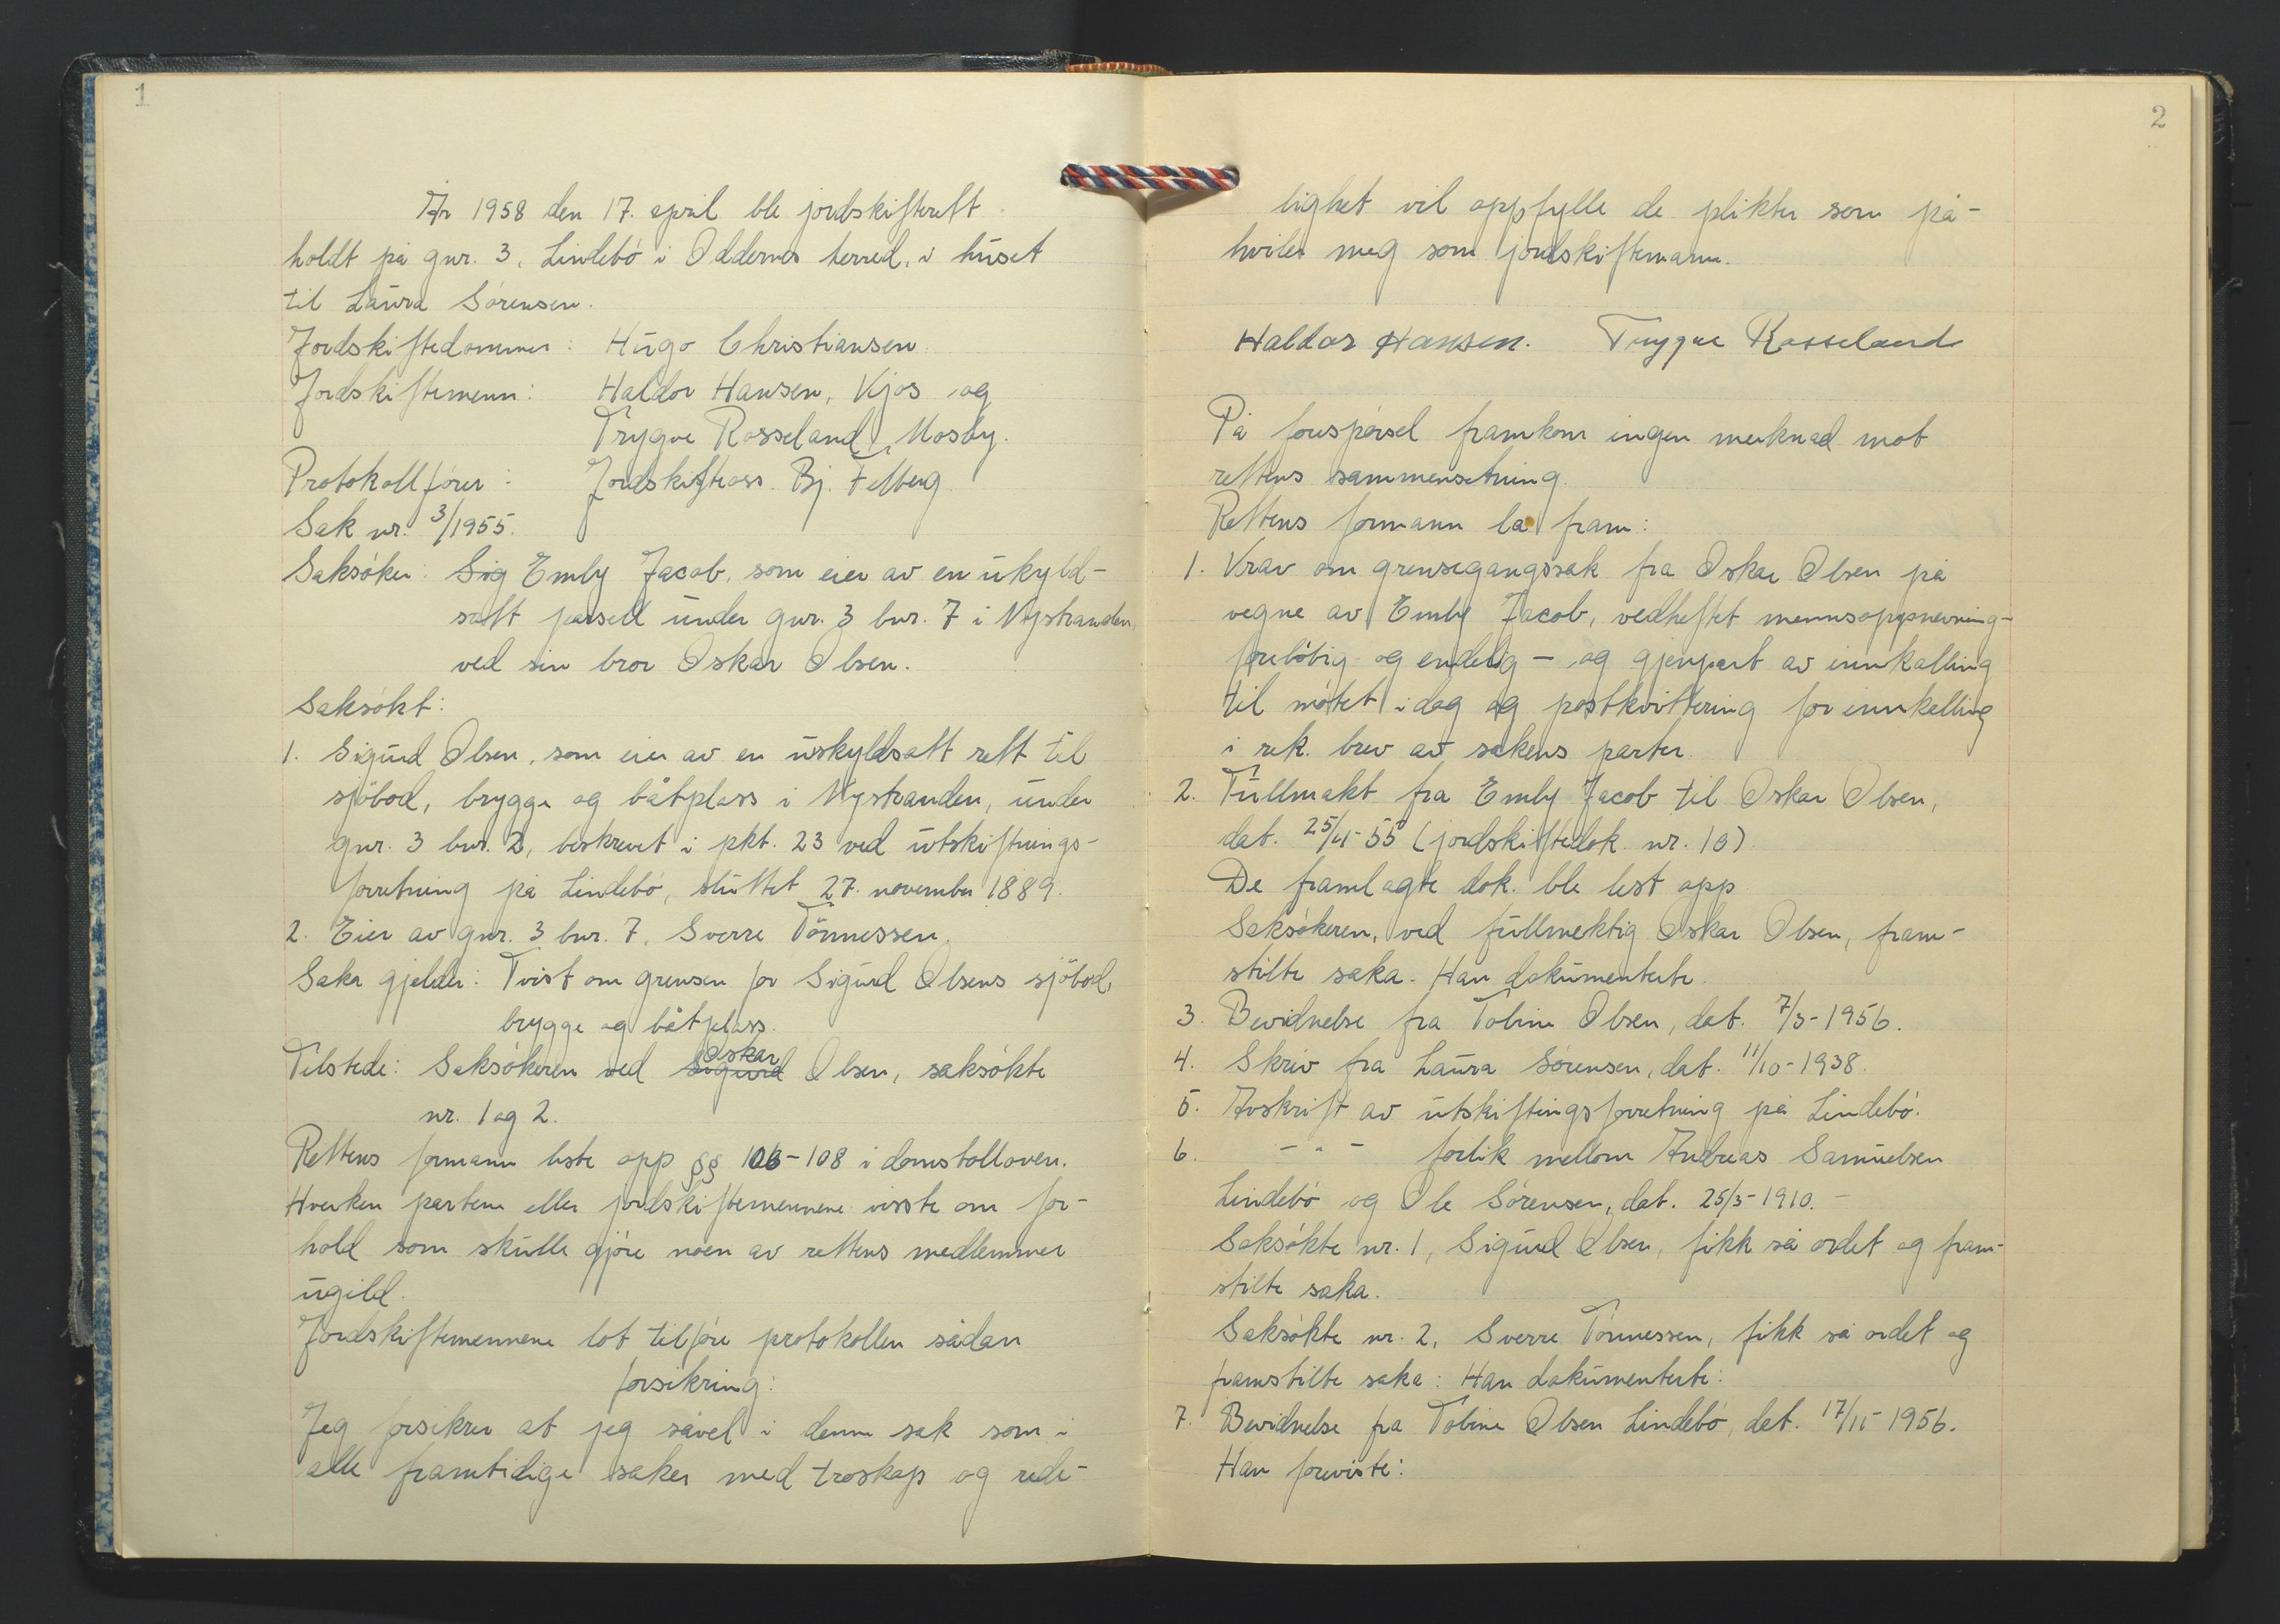 1
År 1958 den 17. april ble jordskifterett
holdt på gnr. 3, Lindebö i Oddernes herred, i huset
til Laura Sörensen.
Jordskiftedommer: Hugo Christiansen
Jordskiftemenn: Haldor Hansen, Kjos og
Trygve Rosseland, Mosby.
Protokollförer: Jordskifteass. Bj. Felberg
Sak nr. 3/1955.
Saksöker: Sig Emly Jacob, som eier av en uskyld-
satt parsell under gnr. 3 bnr. 7 i Nystranden
ved sin bror Oskar Olsen.
Saksökt:
1. Sigurd Olsen, som eier av en uskyldsatt rett til
sjöbod, brygge og båtplass i Nystranden, under
gnr. 3 bnr. 2, beskrevet i pkt. 23 ved utskiftnings-
forretning på Lindebö, sluttet 27. november 1889.
2. Eier av gnr. 3 bnr. 7, Sverre Tönnessen.
Saka gjelder: Tvist om grensen for Sigurd Olsens sjöbod,
brygge og båtplass.
Tilstede: Saksökeren ved Sigurd Oskar Olsen, saksökte
nr. 1 og 2.
Rettens formann leste opp §§ 106-108 i domstolloven.
Hverken partene eller jordskiftemennene visste om for-
hold som skulle gjöre noen av rettens medlemmer
ugild.
Jordskiftemennene lot tilföre protokollen sådan
forsikring:
Jeg forsikrer at jeg såvel i denne sak som i
alle framtidige saker med troskap og rede-
2
lighet vil oppfylle de plikter som på-
hviler meg som jordskiftemann.
Haldor Hansen. Trygve Rosseland
På forespörsel framkom ingen merknad mot
rettens sammensetning.
Rettens formann la fram:
1. Krav om grensegangssak fra Oskar Olsen på
vegne av Emly Jacob, vedheftet mennsoppnevning-
forelöbig og endelig - og gjenpart av innkalling
til mötet i dag og postkvittering for innkalling
i rek. brev av sakens parter.
2. Fullmakt fra Emly Jacob til Oskar Olsen,
dat. 25/4-55 (jordskiftedok. nr. 10)
De framlagte dok. ble lest opp.
Saksökeren, ved fullmektig Oskar Olsen, fram-
stilte saka. Han dokumenterte.
3. Bevidnelse fra Tobine Olsen, dat. 7/5-1956.
4. Skriv fra Laura Sörensen, dat. 11/10-1938.
5. Avskrift av utskiftingsforretning på Lindebö.
6. - " - forlik mellom Andreas Samuelsen
Lindebö og Ole Sörensen, dat. 25/5-1910.-
Saksökte nr. 1, Sigurd Olsen, fikk så ordet og fram-
stilte saka.
Saksökte nr. 2, Sverre Tönnessen, fikk så ordet og
framstilte saka: Han dokumenterte:
7. Bevidnelse fra Tobine Olsen Lindebö, dat. 17/11-1956.
Han foreviste: